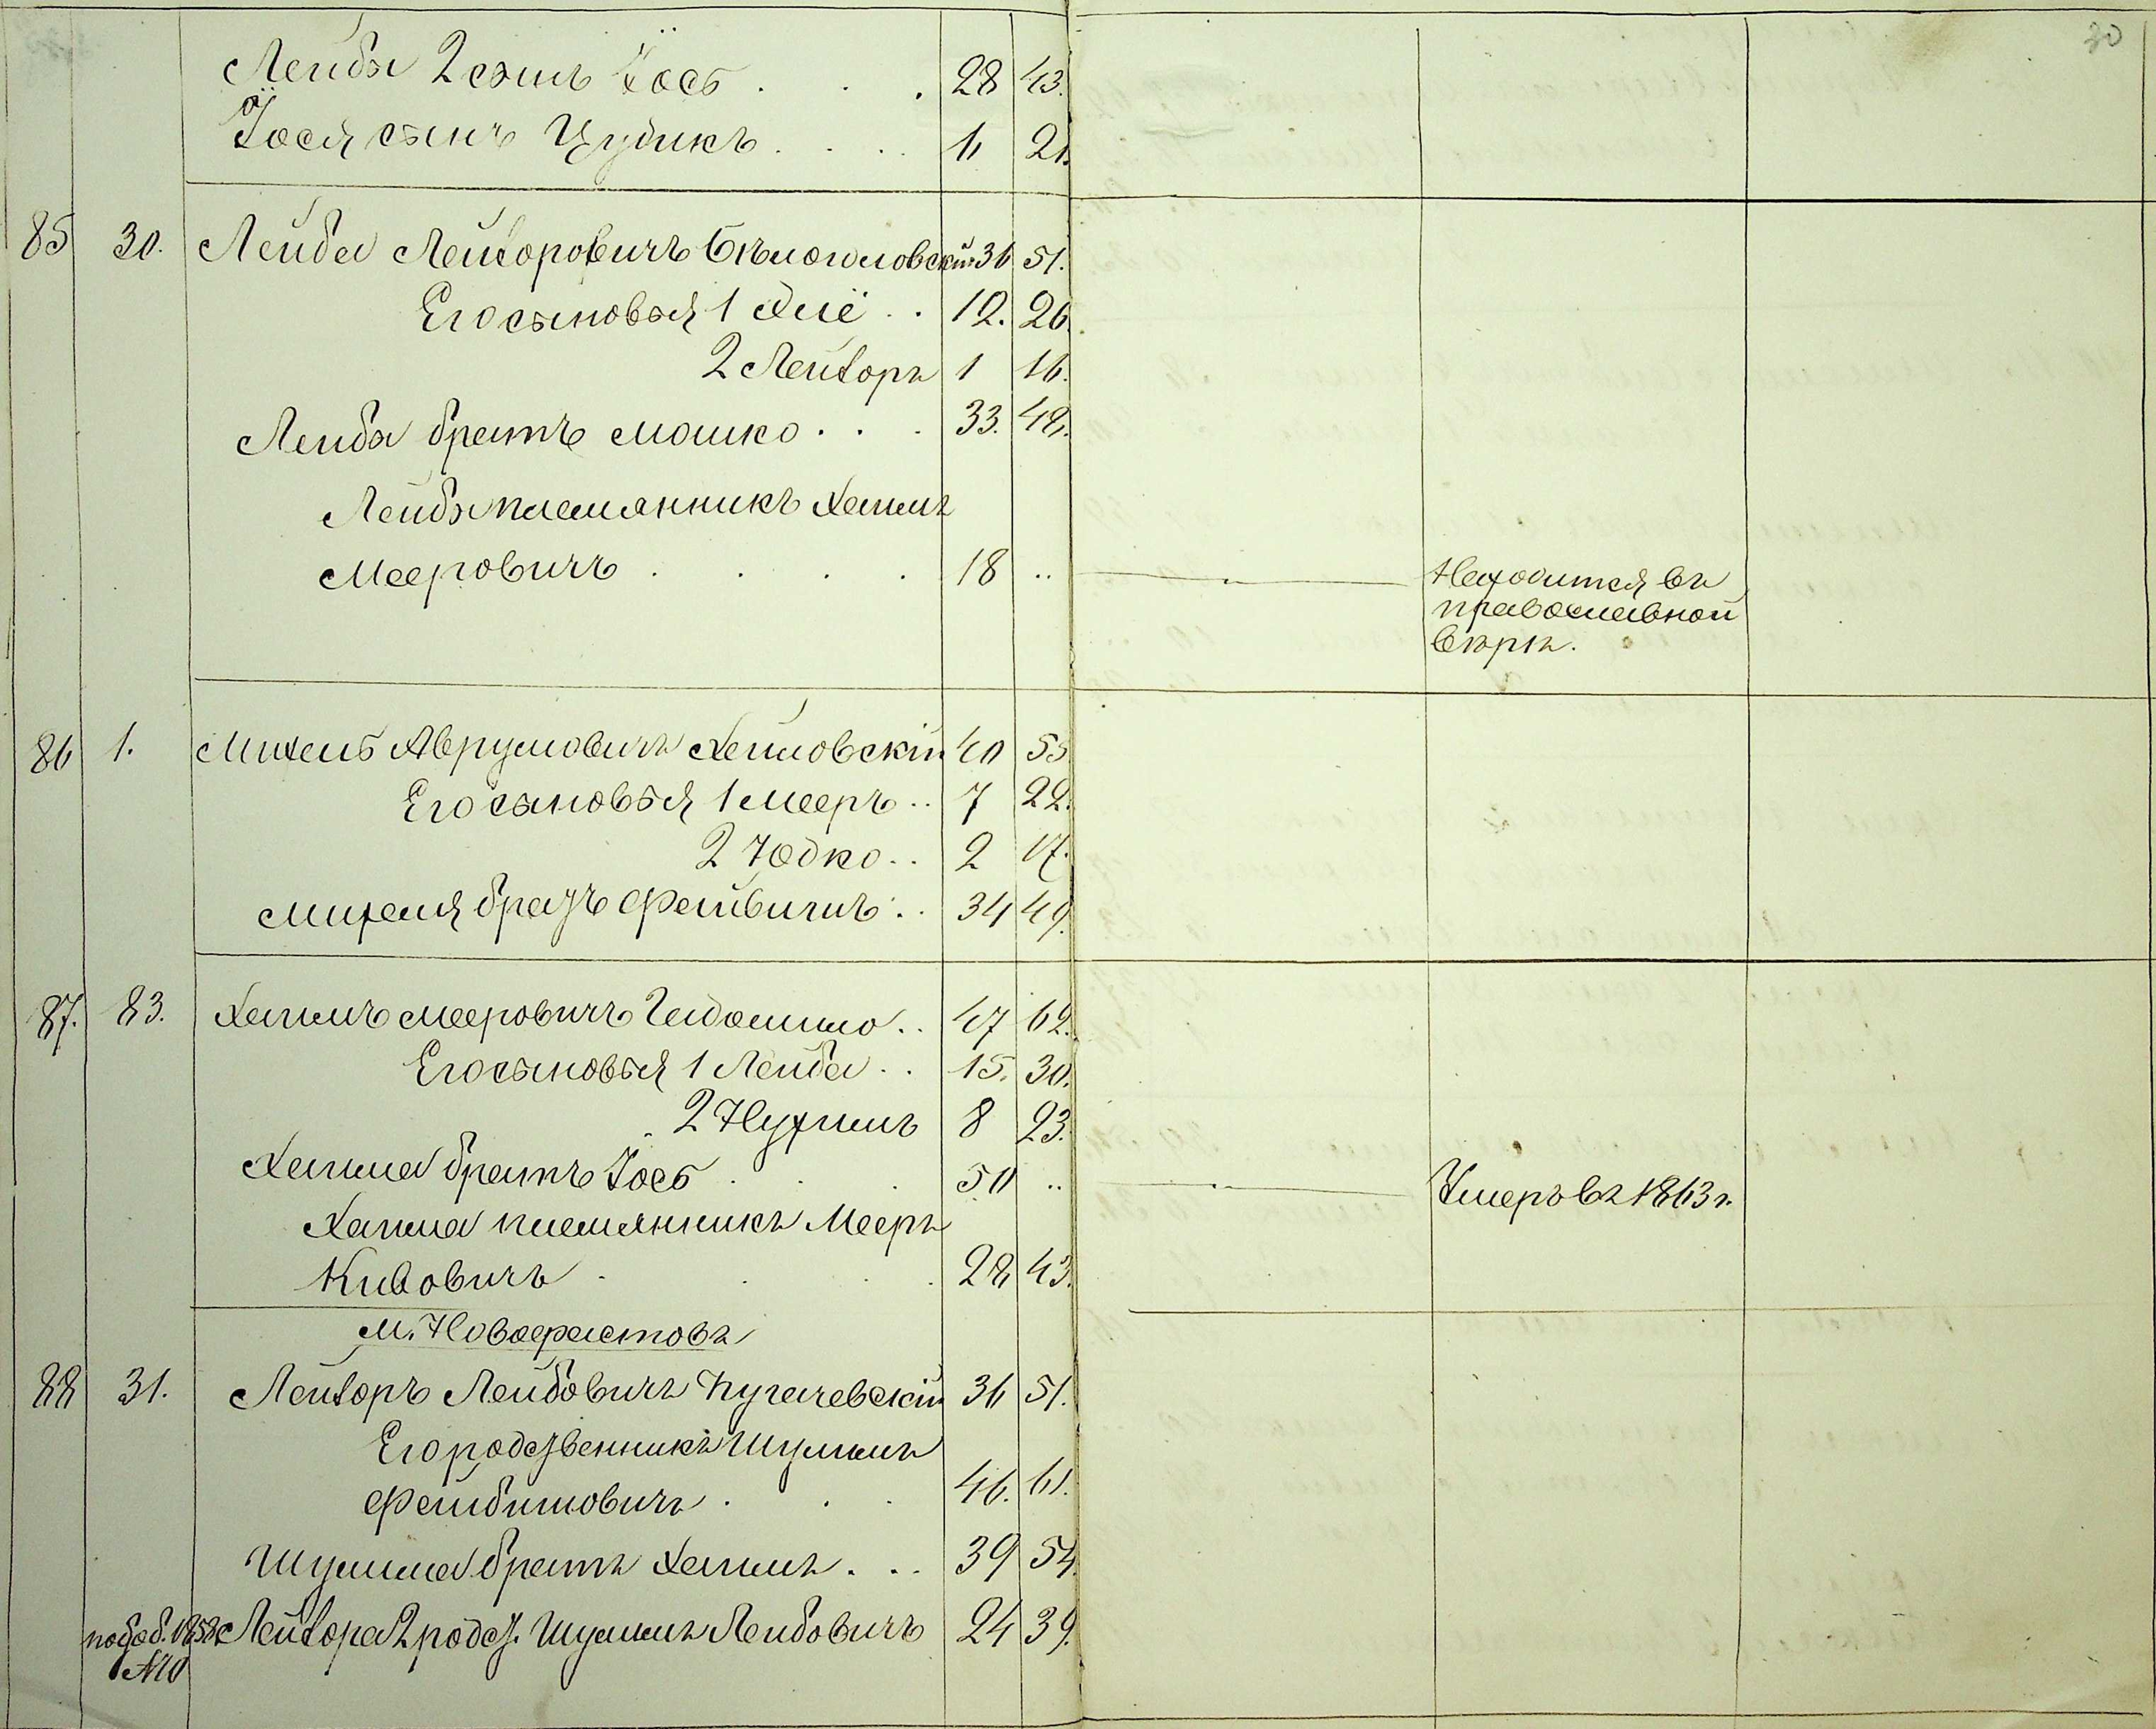 30
Лейбы 2 сынъ Іось . . . 28 43.
Іося сынъ Цудикъ . . . . 6 21.
85 30. Лейба Лейзоровичъ 36 51.
Его сыновья 1 Элё . . 12. 26.
2 Лейзоръ 1 16.
Лейбы братъ Мошко . . . 33. 48.
Лейбы племянникъ Хаимъ
Мееровичъ . . . . 18 .. Находится въ
православной
вѣрѣ.
86 1. Михель Аврумовичъ Хаимовскій 40 55
Его сыновья 1 Мееръ .. 7 22.
2 Юдко .. 2 17.
Михеля братъ Фейвишъ . . 34 49.
87. 83. Хаимъ Мееровичъ .. 47 62.
Его сыновья 1 Лейба . . 15. 30.
2 Нухимъ 8 23.
Хаима братъ Іось . . . 50 .. Умеръ въ 1863 г.
Хаима племянникъ Мееръ
Кивовичъ . . . . 28 43.
М. Новофастовъ
88 31. Лейзоръ Лейбовичъ Пугачевскій 36 51.
Его родственникъ Шулимъ
Фейбишовичъ . . . 46. 61.
Шулима братъ Хаимъ . .. 39 54.
по доб. 1858 г. Лейзора 2 родст. Шулимъ Лейбовичъ 24 39.
№10